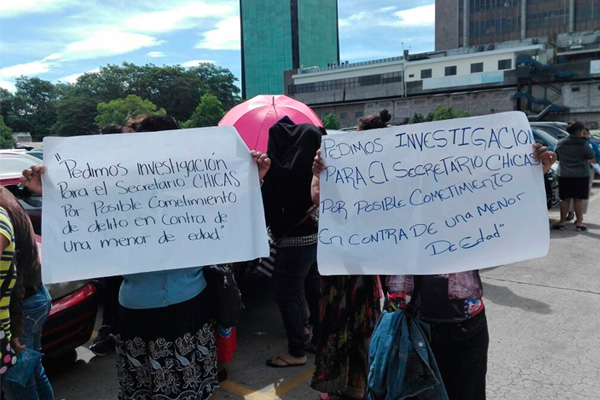 "Pedimos investigación
Para el Secretario CHICAS
Por Posible Cometimiento
de delito en contra de
una menor de edad"
PEDIMOS INVESTIGACIÓN
PARA EL SECRETARIO CHICAS
POR POSIBLE COMETIMIENTO
EN CONTRA DE UNA MENOR
DE EDAD"